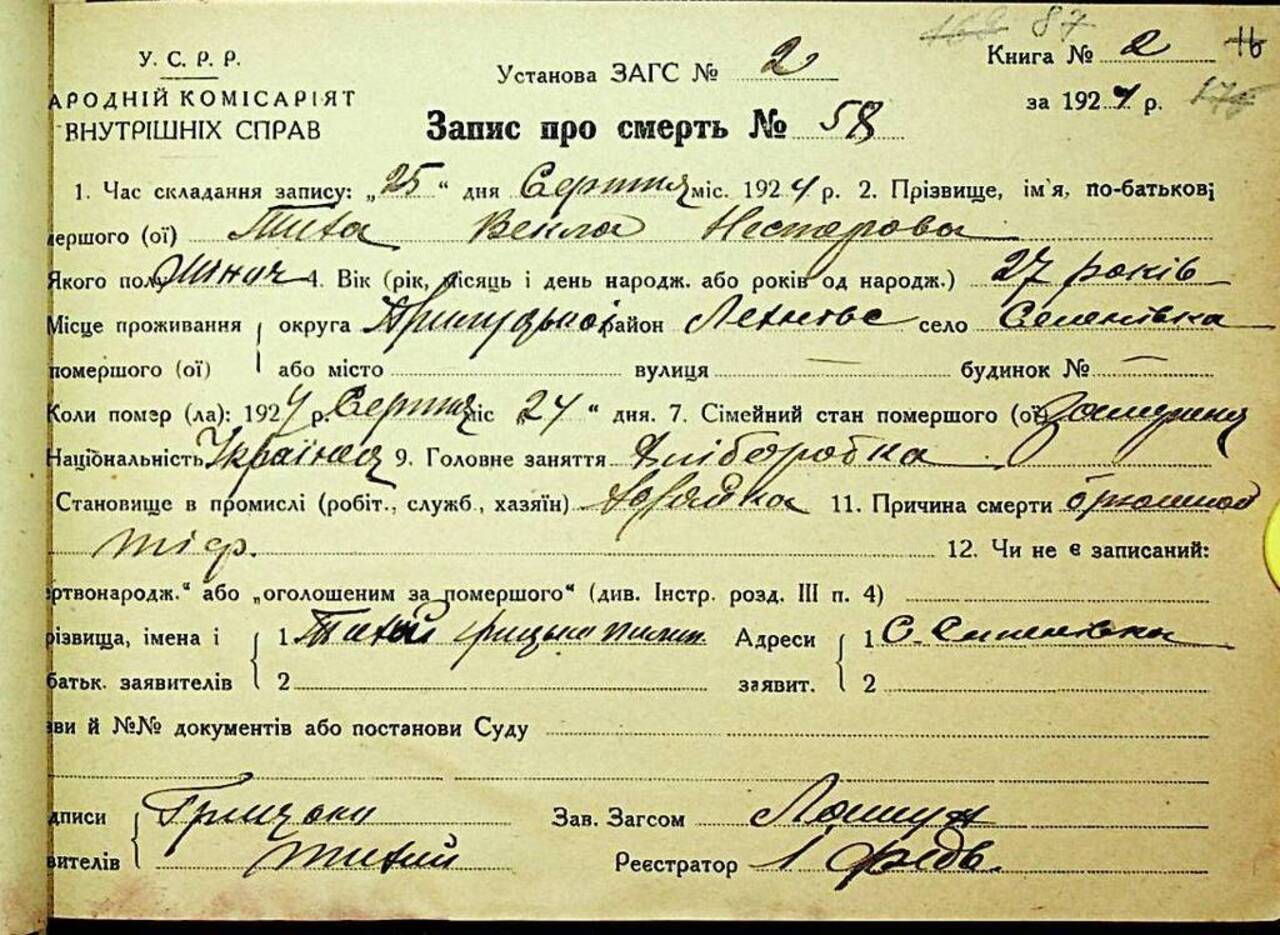 168 87
У. С. Р. Р. Установа ЗАГС № 2 Книга № 2 16
АРОДНІЙ КОМІСАРІЯТ за 1924 р. 176
ВНУТРІШНІХ СПРАВ Запис про смерть № 58
1. Час складання запису: „25“ дня Серпня міс. 1924 р. 2. Прізвище, ім'я, по-батькові
мершого (ої) Тиха Векла Нестерова
Якого полу Жіноч 4. Вік (рік, місяць і день народж. або років од народж.) 27 років
Місце проживання округа Прилуцької район село
помершого (ої) або місто вулиця — будинок № —
Коли помер (ла): 1924 р. Серпня міс „24“ дня. 7. Сімейний стан помершого (ої) замужня
Національність Українка 9. Головне заняття Хліборобка
Становище в промислі (робіт., служб., хазяїн) Хазяйка 11. Причина смерти брюшной
тіф. 12. Чи не є записаний:
ртвонародж.“ або „оголошеним за помершого“ (див. Інстр. розд. III п. 4)
різвища, імена і 1 Тихий Грицько Пилип. Адреси 1 С.
батьк. заявителів 2 заявит. 2
зви й №№ документів або постанови Суду
дписи Грицько Зав. Загсом
вителів Тихий Реєстратор